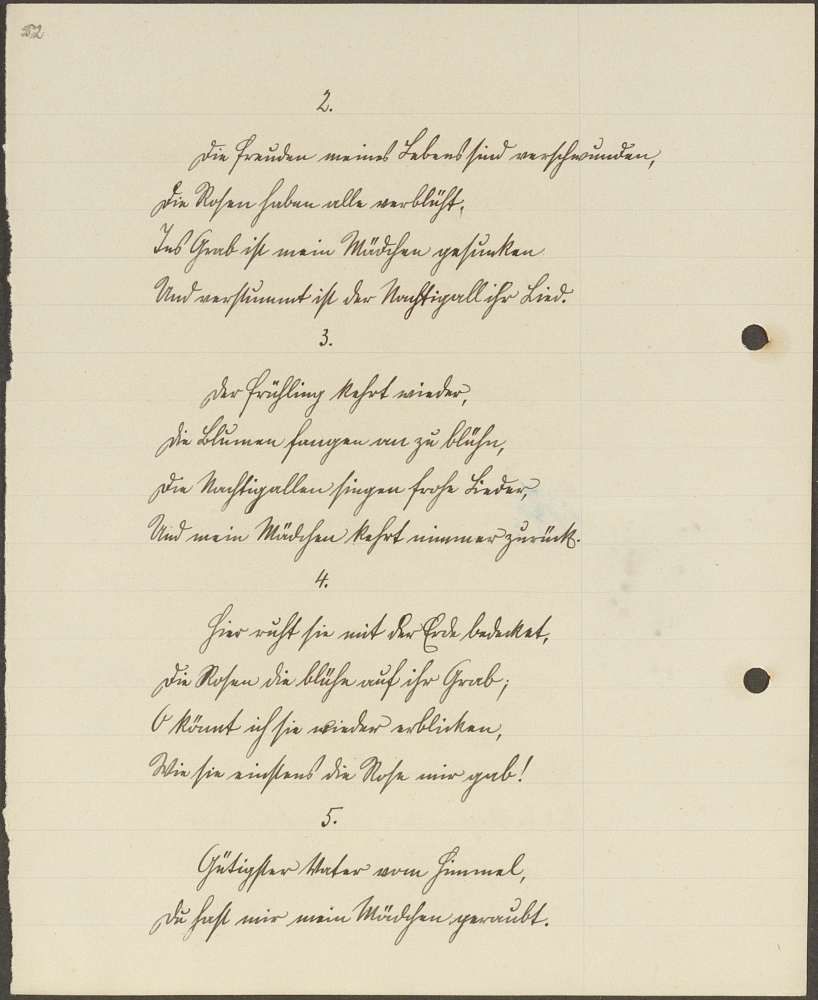 52
2.
Die Freuden meines Lebens sind verschwunden,
Die Rosen haben alle verblüht,
Ins Grab ist mein Mädchen gesunken
Und verstummt ist der Nachtigall ihr Lied.
3.
Der Frühling kehrt wieder,
Die Blumen fangen an zu blühn,
Die Nachtigallen singen frohe Lieder,
Und mein Mädchen kehrt nimmer zurück.
4.
Hier ruht sie mit der Erde bedecket,
Die Rosen die blühn auf ihr Grab;
O könnt ich sie wieder erblicken,
Wie sie einstens die Rose mir gab!
5.
Gütigster Vater vom Himmel,
Du hast mir mein Mädchen geraubt.